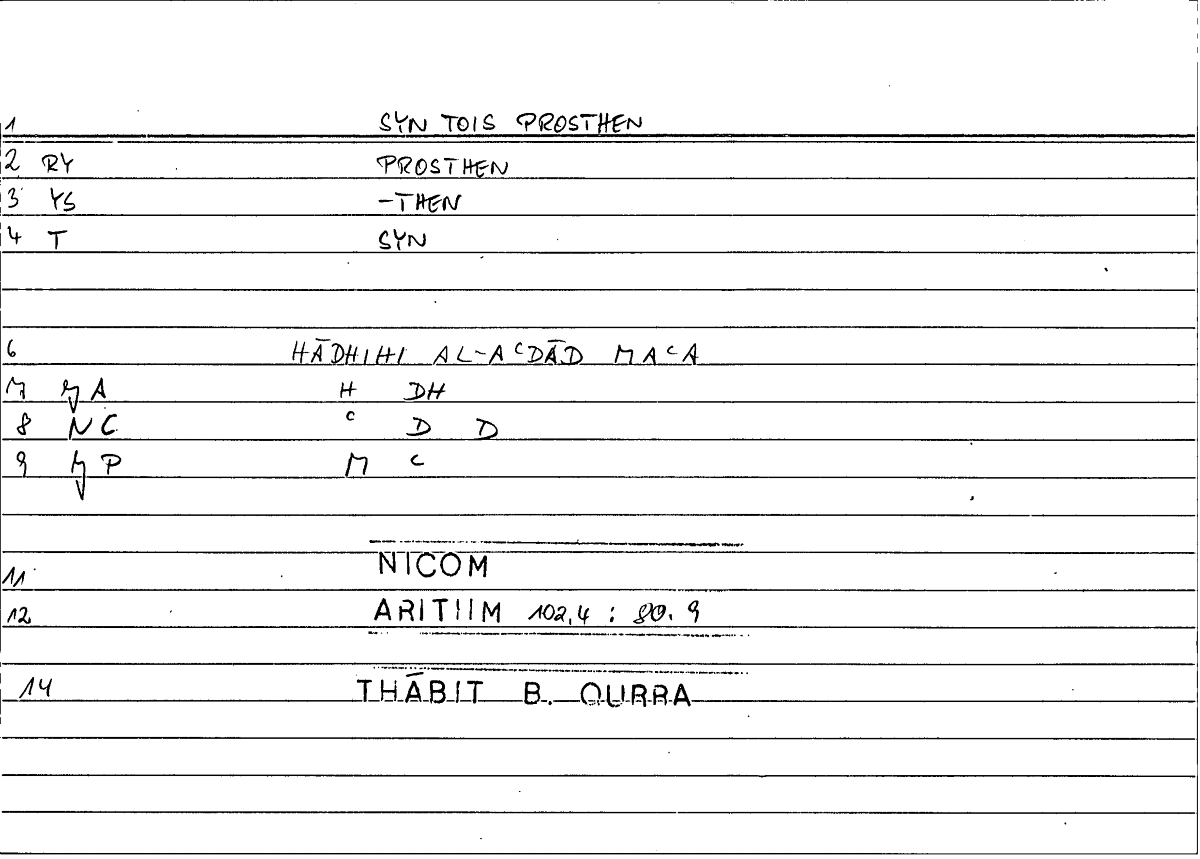 1 SYN TOIS PROSTHEN
2 RY PROSTHEN
3 YS -THEN
4 T SYN
6 HĀDHIHI AL-AᶜDĀD MAᶜA
7 A H DH
8 NC ᶜ D D
9 P M ᶜ
11 NICOM
12 ARITIIM 102,4 : 80.9
14 THĀBIT B. QURRA